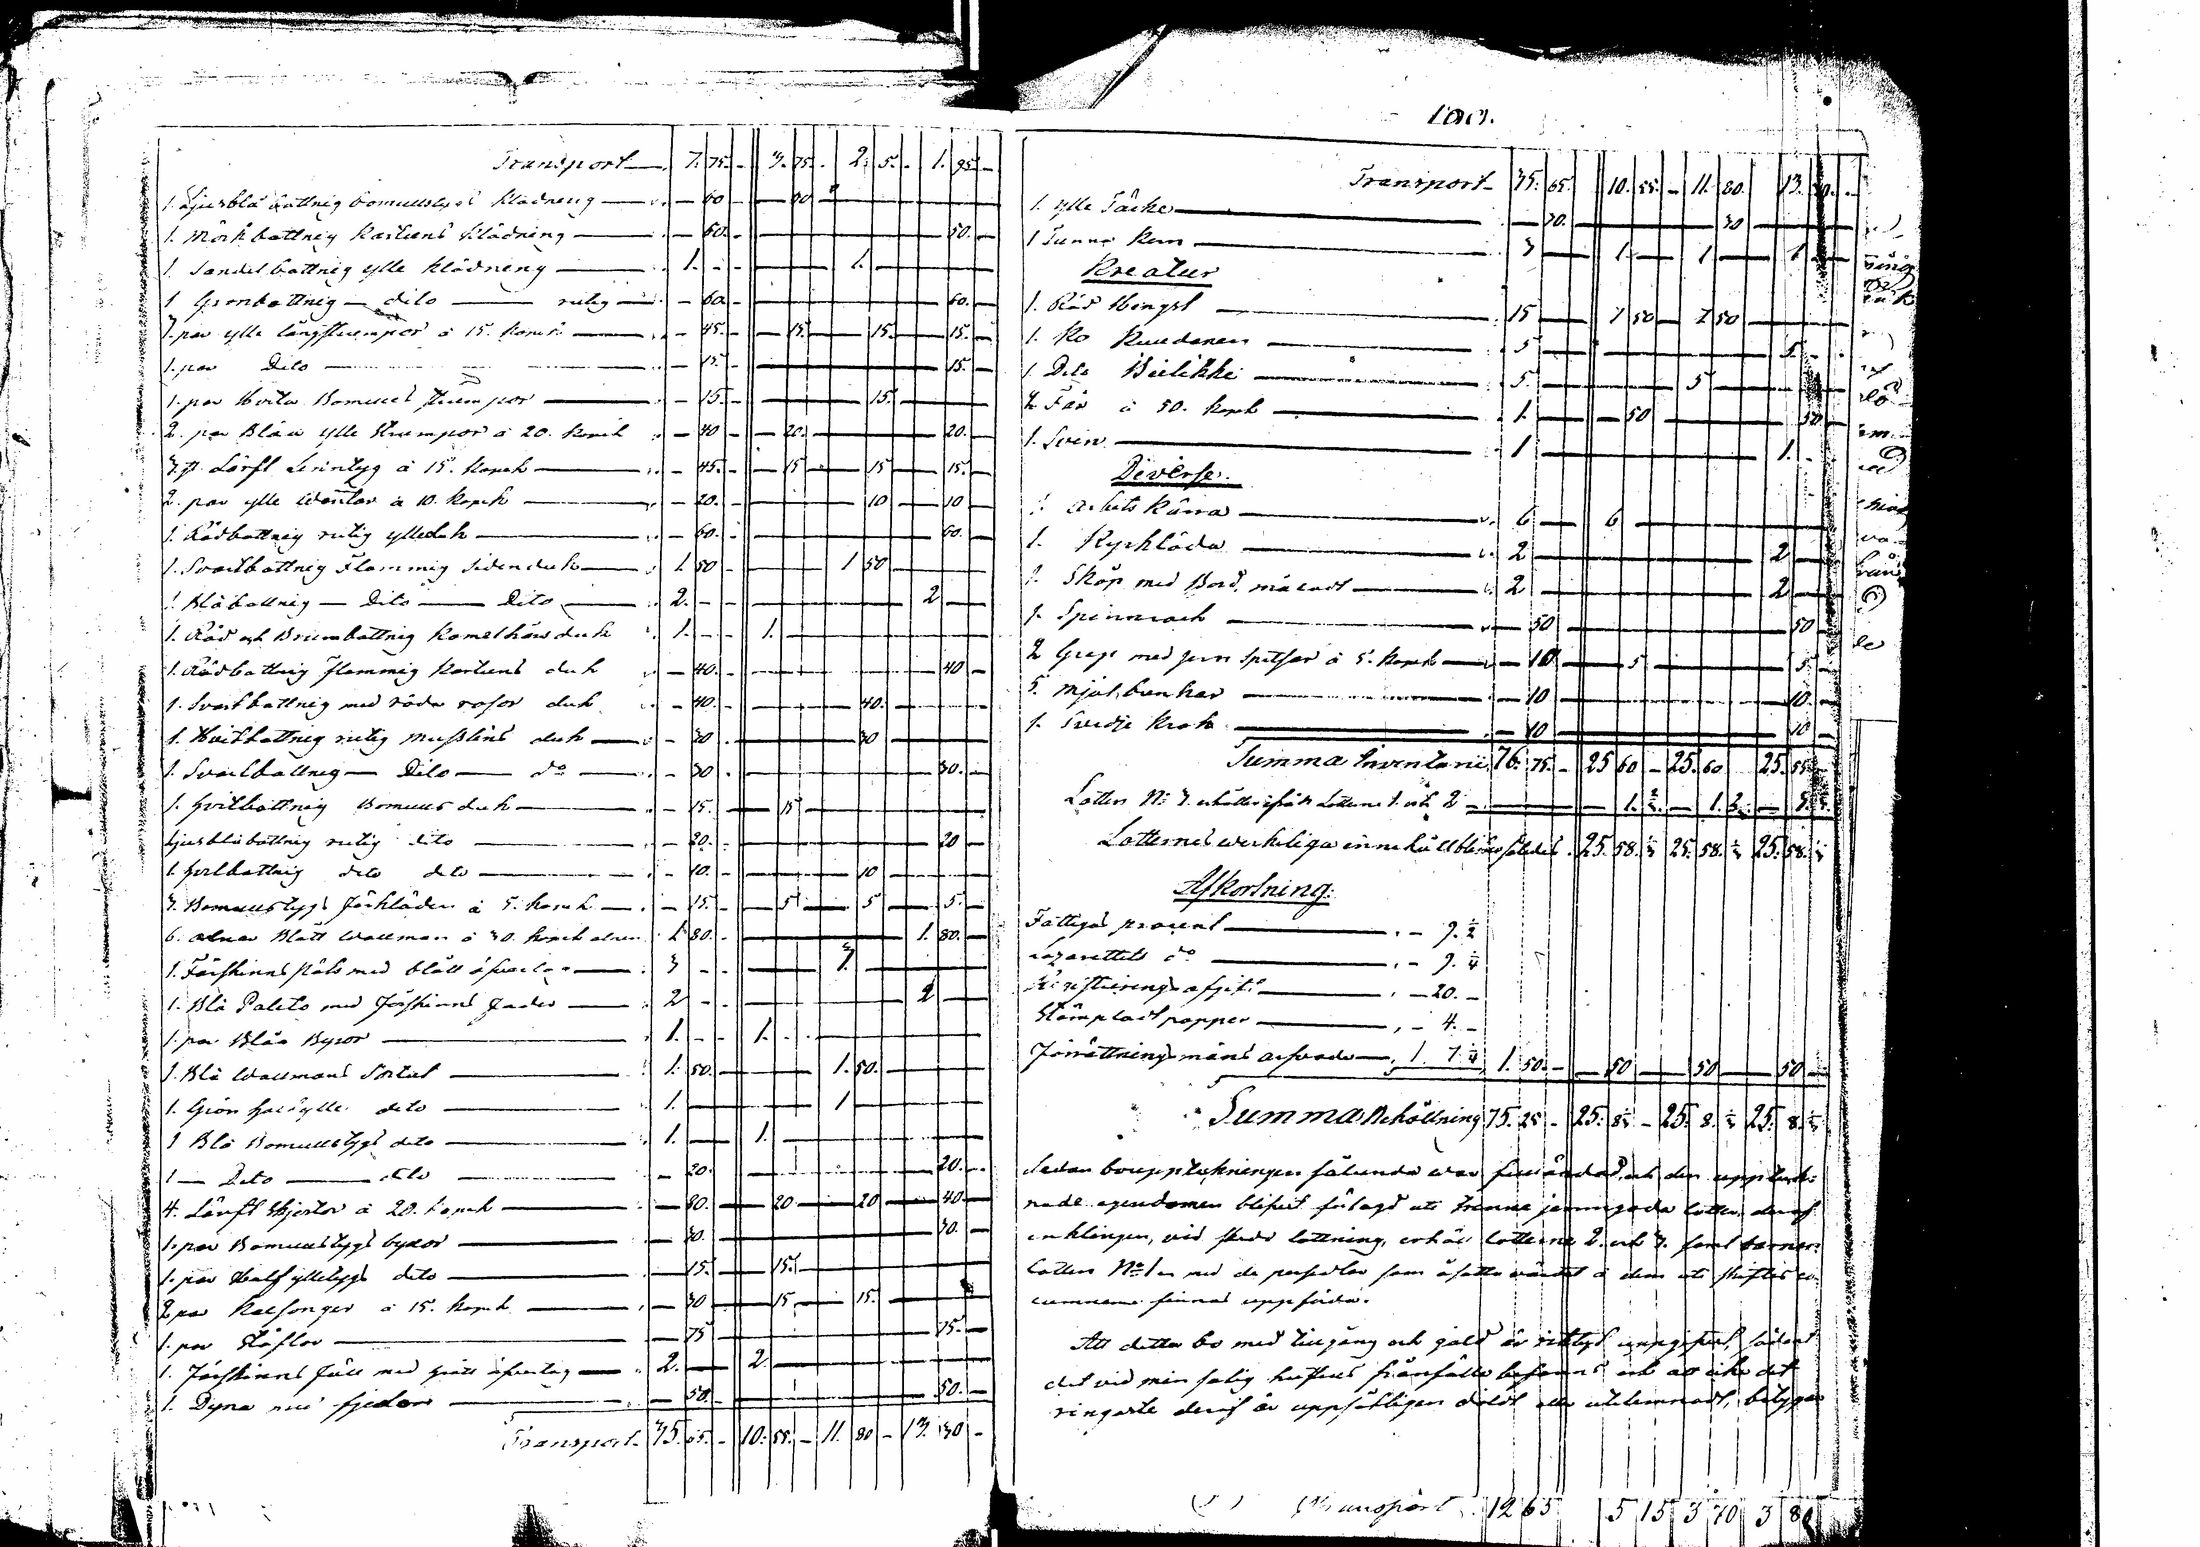 Transport 7. 75. - 3. 75. - 2. 5. - 1. 95. -
1. Ljusblå bottnig bomullstygs klädning - 60 - 30
1. Mörkbottnig kartuns klädning - 60. - 50. -
1. Sandelbottnig ylle klädning 1. - - 1.
1 Grönbottnig dito rutig - 60 - 60. -
3. par ylle långstrumpor à 15. kopek - 45. - 15. 15. 15. -
1. par Dito - 15. - 15. -
1. par Hvita Bomulls strumpor - 15. 15.
2. par Blåa ylle strumpor à 20. kopek - 40 - 20. 20. -
3. st. Lärft Linntyg à 15. kopek - 45. 15 15 15. -
2. par ylle Wantar à 10. kopek - 20. 10 10
1. Rödbottnig rutig ylleduk - 60. - 60. -
1. Svartbottnig Flammig Sidenduk 1 50 - 1 50
1 Blåbottnig Dito Dito 2. - - 2
1. Röd och Brunbottnig kamelhårs duk 1. - - 1.
1. Rödbottnig flammig kartuns duk - 40. - 40 -
1. Svartbottnig med röda rosor duk - 40. - 40.
1. Hvitbottnig rutig musslins duk - 30 30
1. Svartbottnig Dito do - 30 30. -
1. Hvitbottnig Bomulls duk - 15. 15
Ljusblåbottnig rutig dito - 20. 20 -
1. Hvitbottnig dito dito - 10. 10
3. Bomullstygs förkläden à 5. kopek - 15. 5 5 5. -
6. alnar Blått Wallman à 30. kopek alnen 1 80. - 1. 80. -
1. Fårskinns päls med blått öfvertyg 3 - - 3.
1. Blå Paleto med fårskinns foder 2 - - 2
1. par Blåa Byxor 1. - - 1.
1. Blå Wallmans Sortut 1. 50. 1. 50.
1. Grön halfylle dito 1. 1
1 Blå Bomullstygs dito 1. 1.
1 Dito dito - 20. 20. -
4. Lärft Skjortor à 20. kopek - 80. 20 20 40. -
1. par Bomullstygs byxor - 30. 30. -
1. par Halfylletygs dito - 15. 15.
2 par Kalsonger à 15. kopek - 30 15 15.
1. par Stöflor - 75 75. -
1. Fårskinns Fäll med grått öfvertyg 2. 2.
1. Dyna med fjedrar - 50 50. -
Transport 35. 65. - 10. 55. - 11. 80 - 13. 30 -
Transport 35. 65. 10. 55. - 11. 80. 13. 30. -
1. ylle Täcke - 30. 30
1 Tunna Korn 3 1. 1 1
Kreatur
1. Röd Hingst 15 7 50 7 50
1. Ko 5 5. -
1. Dito 5. 5
2 Får à 50. kopek 1. 50 50
1. Svin 1 1. -
Diverse.
1. Arbets kärra 6 6
1. Kyrkläda 2 2
1. Skåp med Bord, måladt 2 2
1. Spinnrock - 50 50
2 Grep med jern spitsar à 5. kopek - 10 5 5.
5. Mjölkbunkar - 10 10.
1. Svedje krok - 10 10 -
Summa Inventarii 76. 75. - 25 60 - 25. 60 25. 55
Lotten No 3. erhåller ifrån Lotterne 1. och 2
Lotternes werkeliga innehåll blifver således 25. 58. 1/3 25. 58. 1/3 25. 58. 1/3
Afkortning:
Fattigas procent - 9. 1/2
Lazarettets do - 9. 1/4
Registrerings afgift - 20. -
Stämpladt papper - 4. -
Förrättningsmäns arfvode 1. 7. 1/4 1. 50. - 50 50 50
Summa Behållning 75. 25 - 25. 8 1/3 - 25. 8. 1/3 25. 8. 1/3
Sedan bouppteckningen sålunda war fulländad, och den uppteck-
nade egendomen blifvit fördelad uti trenne jemngoda lotter, deraf
enklingen, vid skedd lottning, erhöll lotterne 2. och 3. samt barnen
lotten No 1 med de persedlar som åsatte värdet
columnerne finnas uppförda.
Att detta bo med tillgång och gäld är riktigt uppgifvet, sådant
det vid min salig hustrus frånfälle befanns och att icke det
ringaste deraf är uppsåtligen doldt eller utelemnadt, betygar
Transport 12 65 5 15 3 70 3 80